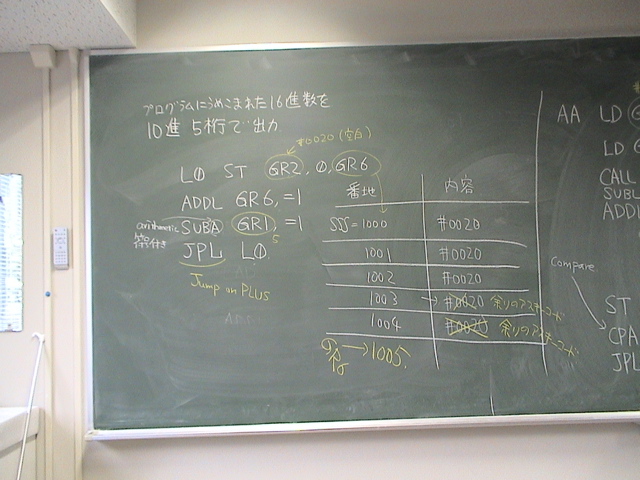 プログラムにうめこまれた16進数を
10進 5桁で出力
#0020 (空白)
L0 ST GR2, 0, GR6
ADDL GR6, =1
arithmetic
SUBA GR1, =1
符号付き
5
JPL L0
Jump on PLUS
番地 内容
SSS=1000 #0020
1001 #0020
1002 #0020
1003 → #0020 余りのアスキーコード
1004 #0020 余りのアスキーコード
GR6 → 1005
AA LD
LD G
CALL
SUBL
ADDL
Compare
ST
CPA
JPL